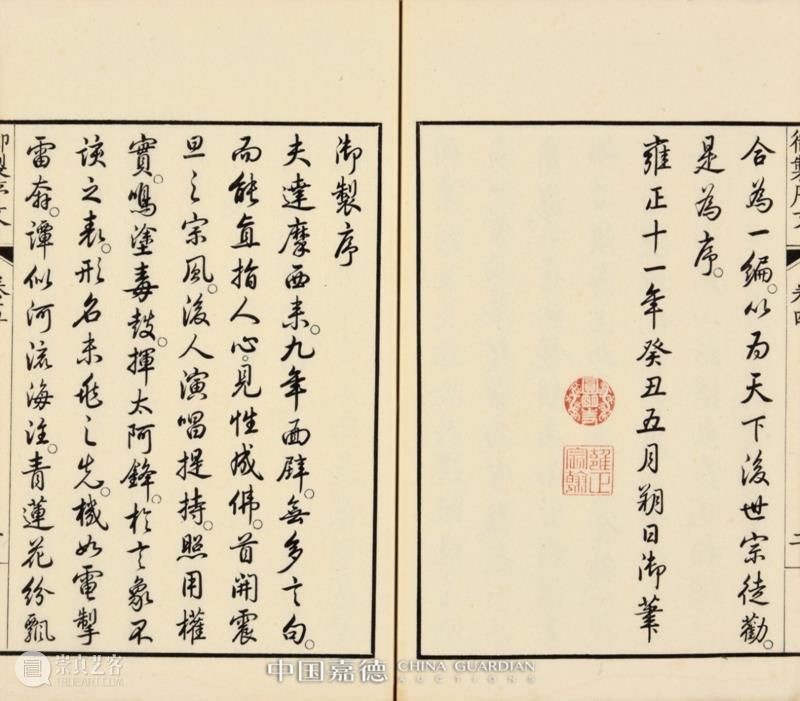 御製序文 卷四
合為一編。以為天下後世宗徒勸。
是為序。
雍正十一年癸丑五月朔日御筆
雍正宸翰
御製序
夫達摩西來。九年面壁。無多言句。
而能直指人心。見性成佛。首開震
旦之宗風。後人演唱提持。照用權
實。鳴塗毒鼓。揮太阿鋒。於言象不
該之表。形名未兆之先。機如電掣
雷奔。譚似河流海注。青蓮花紛飄
御製序文 卷五
中国嘉德 CHINA GUARDIAN
AUCTIONS
崇真艺客
TRUEART.COM